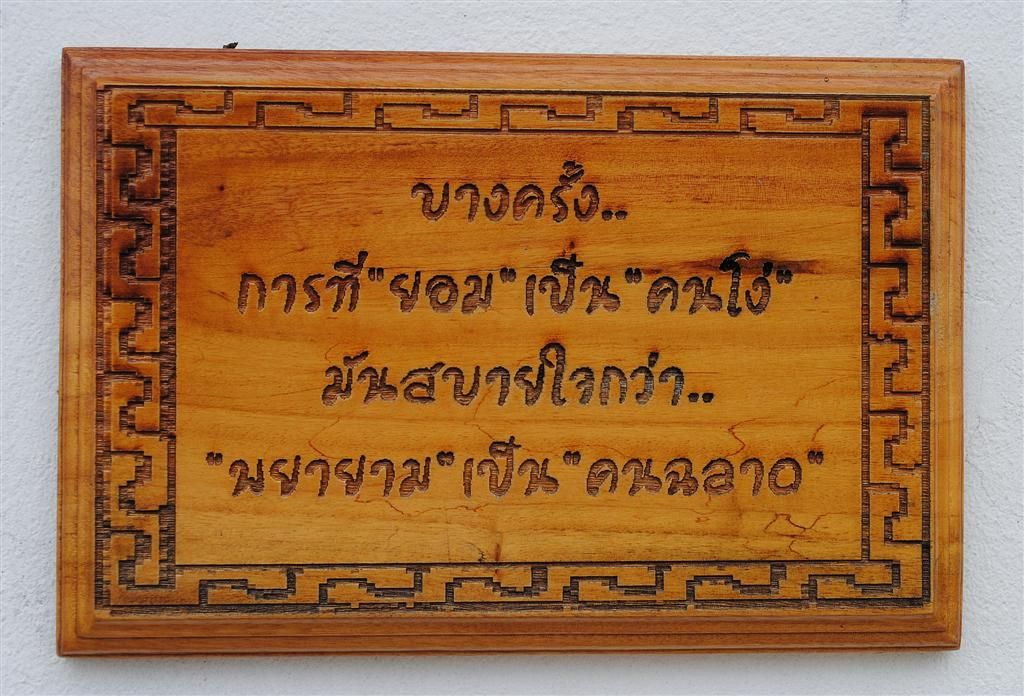 บางครั้ง..
การที่"ยอม"เป็น"คนโง่"
มันสบายใจกว่า..
"พยายาม"เป็น"คนฉลาด"